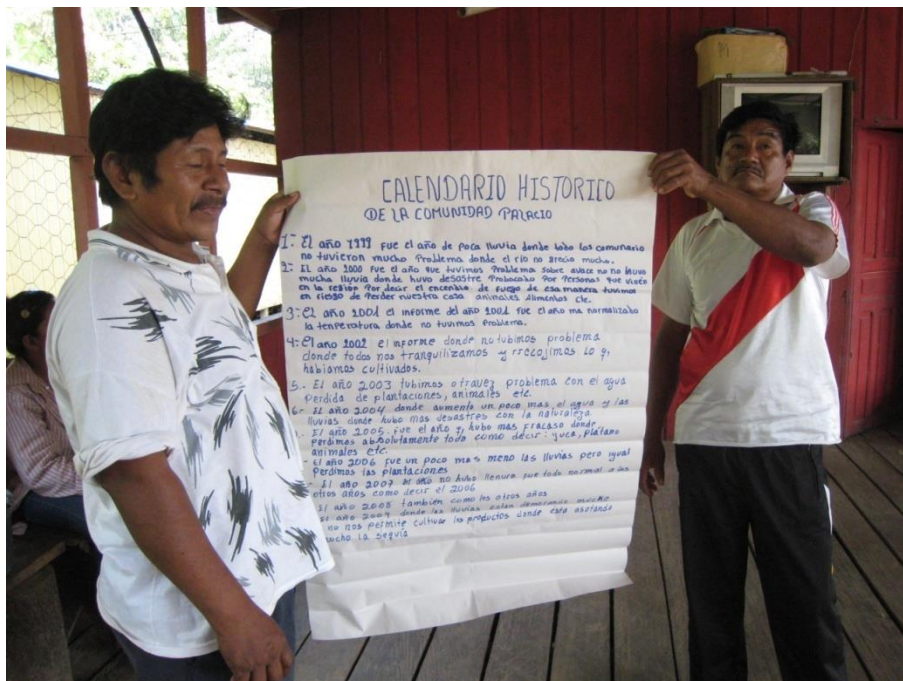 CALENDARIO HISTORICO
DE LA COMUNIDAD PALACIO
1- El año 1999 fue el año de poca lluvia donde todo los comunario
no tuvieron mucho Problema donde el rio no crecio mucho.
2- El año 2000 fue el año que tuvimos Problema sobre no no huvo
mucha lluvia donde huvo desastre Probocado Por Personas que viven
en la region Por decir el encendio de fuego de esa manera tuvimos
en riesgo de Perder nuestra casa animales Alimentos etc.
3- El año 2001 el informe del año 2001 fue el año ma normalizado
la tenperatura donde no tuvimos Problema.
4- El ano 2002 el informe donde no tubimos problema
donde todos nos tranquilizamos y rrecojimos lo q,
habiamos cultivados.
5.- El año 2003 tubimos otravez problema con el agua
perdida de plantaciones, animales etc.
6- El año 2004 donde aumento un poco mas el agua y las
lluvias donde hubo mas desastres con la naturaleza
.- El año 2005. fue el año q, hubo mas fracaso donde
perdimos absolutamente todo como decir: yuca, plátano
animales etc.
- El año 2006 fue un poco mas meno las lluvias pero igual
Perdimos las plantaciones
- El año 2007 el año no hubo llenura fue todo normal a los
otros años como decir el 2006
El año 2008 tambien como los otros años
El año 2009 donde las lluvias estan demorando mucho
no nos permite cultivar los productos donde esta asotando
mucho la seguia